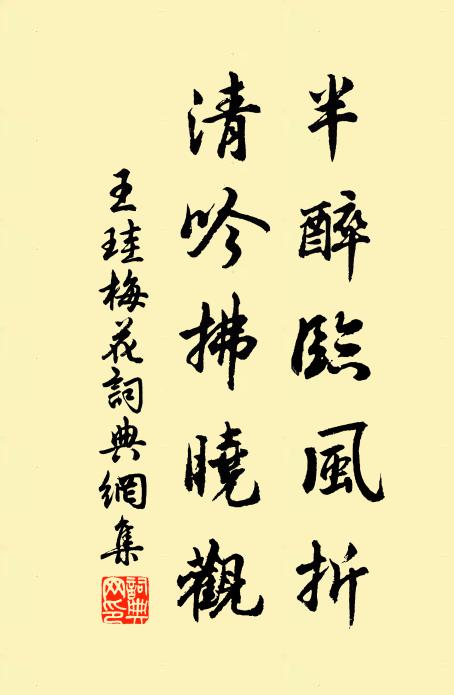 半醉臨風折
清吟拂曉觀
王珪梅花詞典網集
詞典網印